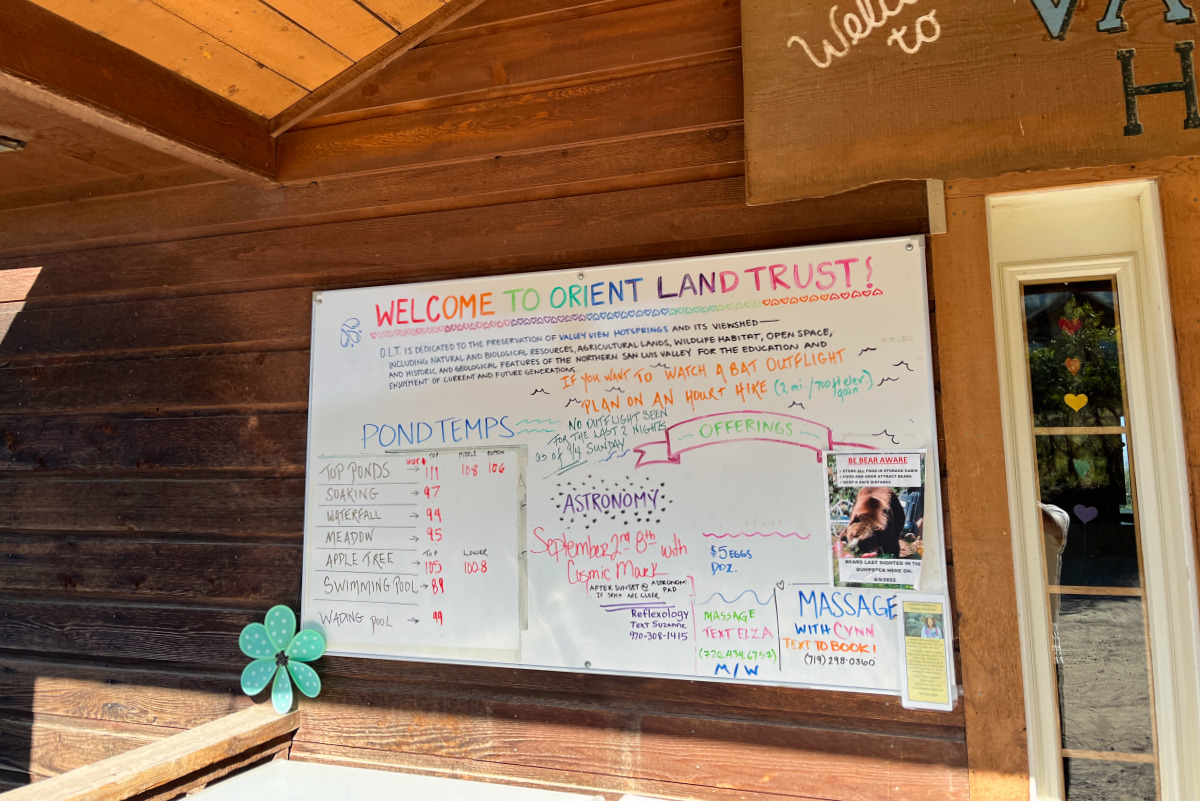 Welcome
to
VA
H
WELCOME TO ORIENT LAND TRUST!
O.L.T. IS DEDICATED TO THE PRESERVATION OF VALLEY VIEW HOTSPRINGS AND ITS VIEWSHED—
INCLUDING NATURAL AND BIOLOGICAL RESOURCES, AGRICULTURAL LANDS, WILDLIFE HABITAT, OPEN SPACE,
AND HISTORIC AND GEOLOGICAL FEATURES OF THE NORTHERN SAN LUIS VALLEY FOR THE EDUCATION AND
ENJOYMENT OF CURRENT AND FUTURE GENERATIONS.
IF YOU WANT TO WATCH A BAT OUTFLIGHT
PLAN ON AN HOUR+ HIKE (2 mi./700ft elev. gain)
NO OUTFLIGHT BEEN
FOR THE LAST 2 NIGHTS
as of 9/4 SUNDAY
POND TEMPS
HOT! TOP MIDDLE BOTTOM
TOP PONDS → 111 108 106
SOAKING → 97
WATERFALL → 94
MEADOW → 95
TOP LOWER
APPLE TREE → 105 100.8
SWIMMING POOL → 89
WADING POOL → 99
OFFERINGS
ASTRONOMY
September 2nd 8th with
Cosmic Mark
AFTER SUNSET @ ASTRONOMY PAD
IF SKIES ARE CLEAR
Reflexology
Text Suzanne
970-308-1415
$5 EGGS
DOZ.
MASSAGE
TEXT ELZA
(720.439.6757)
M/W
MASSAGE
WITH CYNN
TEXT TO BOOK!
(719) 298-0360
BE BEAR AWARE
• STORE ALL FOOD IN STORAGE CABIN
• FOOD AND ODOR ATTRACT BEARS
• KEEP A SAFE DISTANCE
BEARS LAST SIGHTED IN THE
DUMPSTER HERE ON: